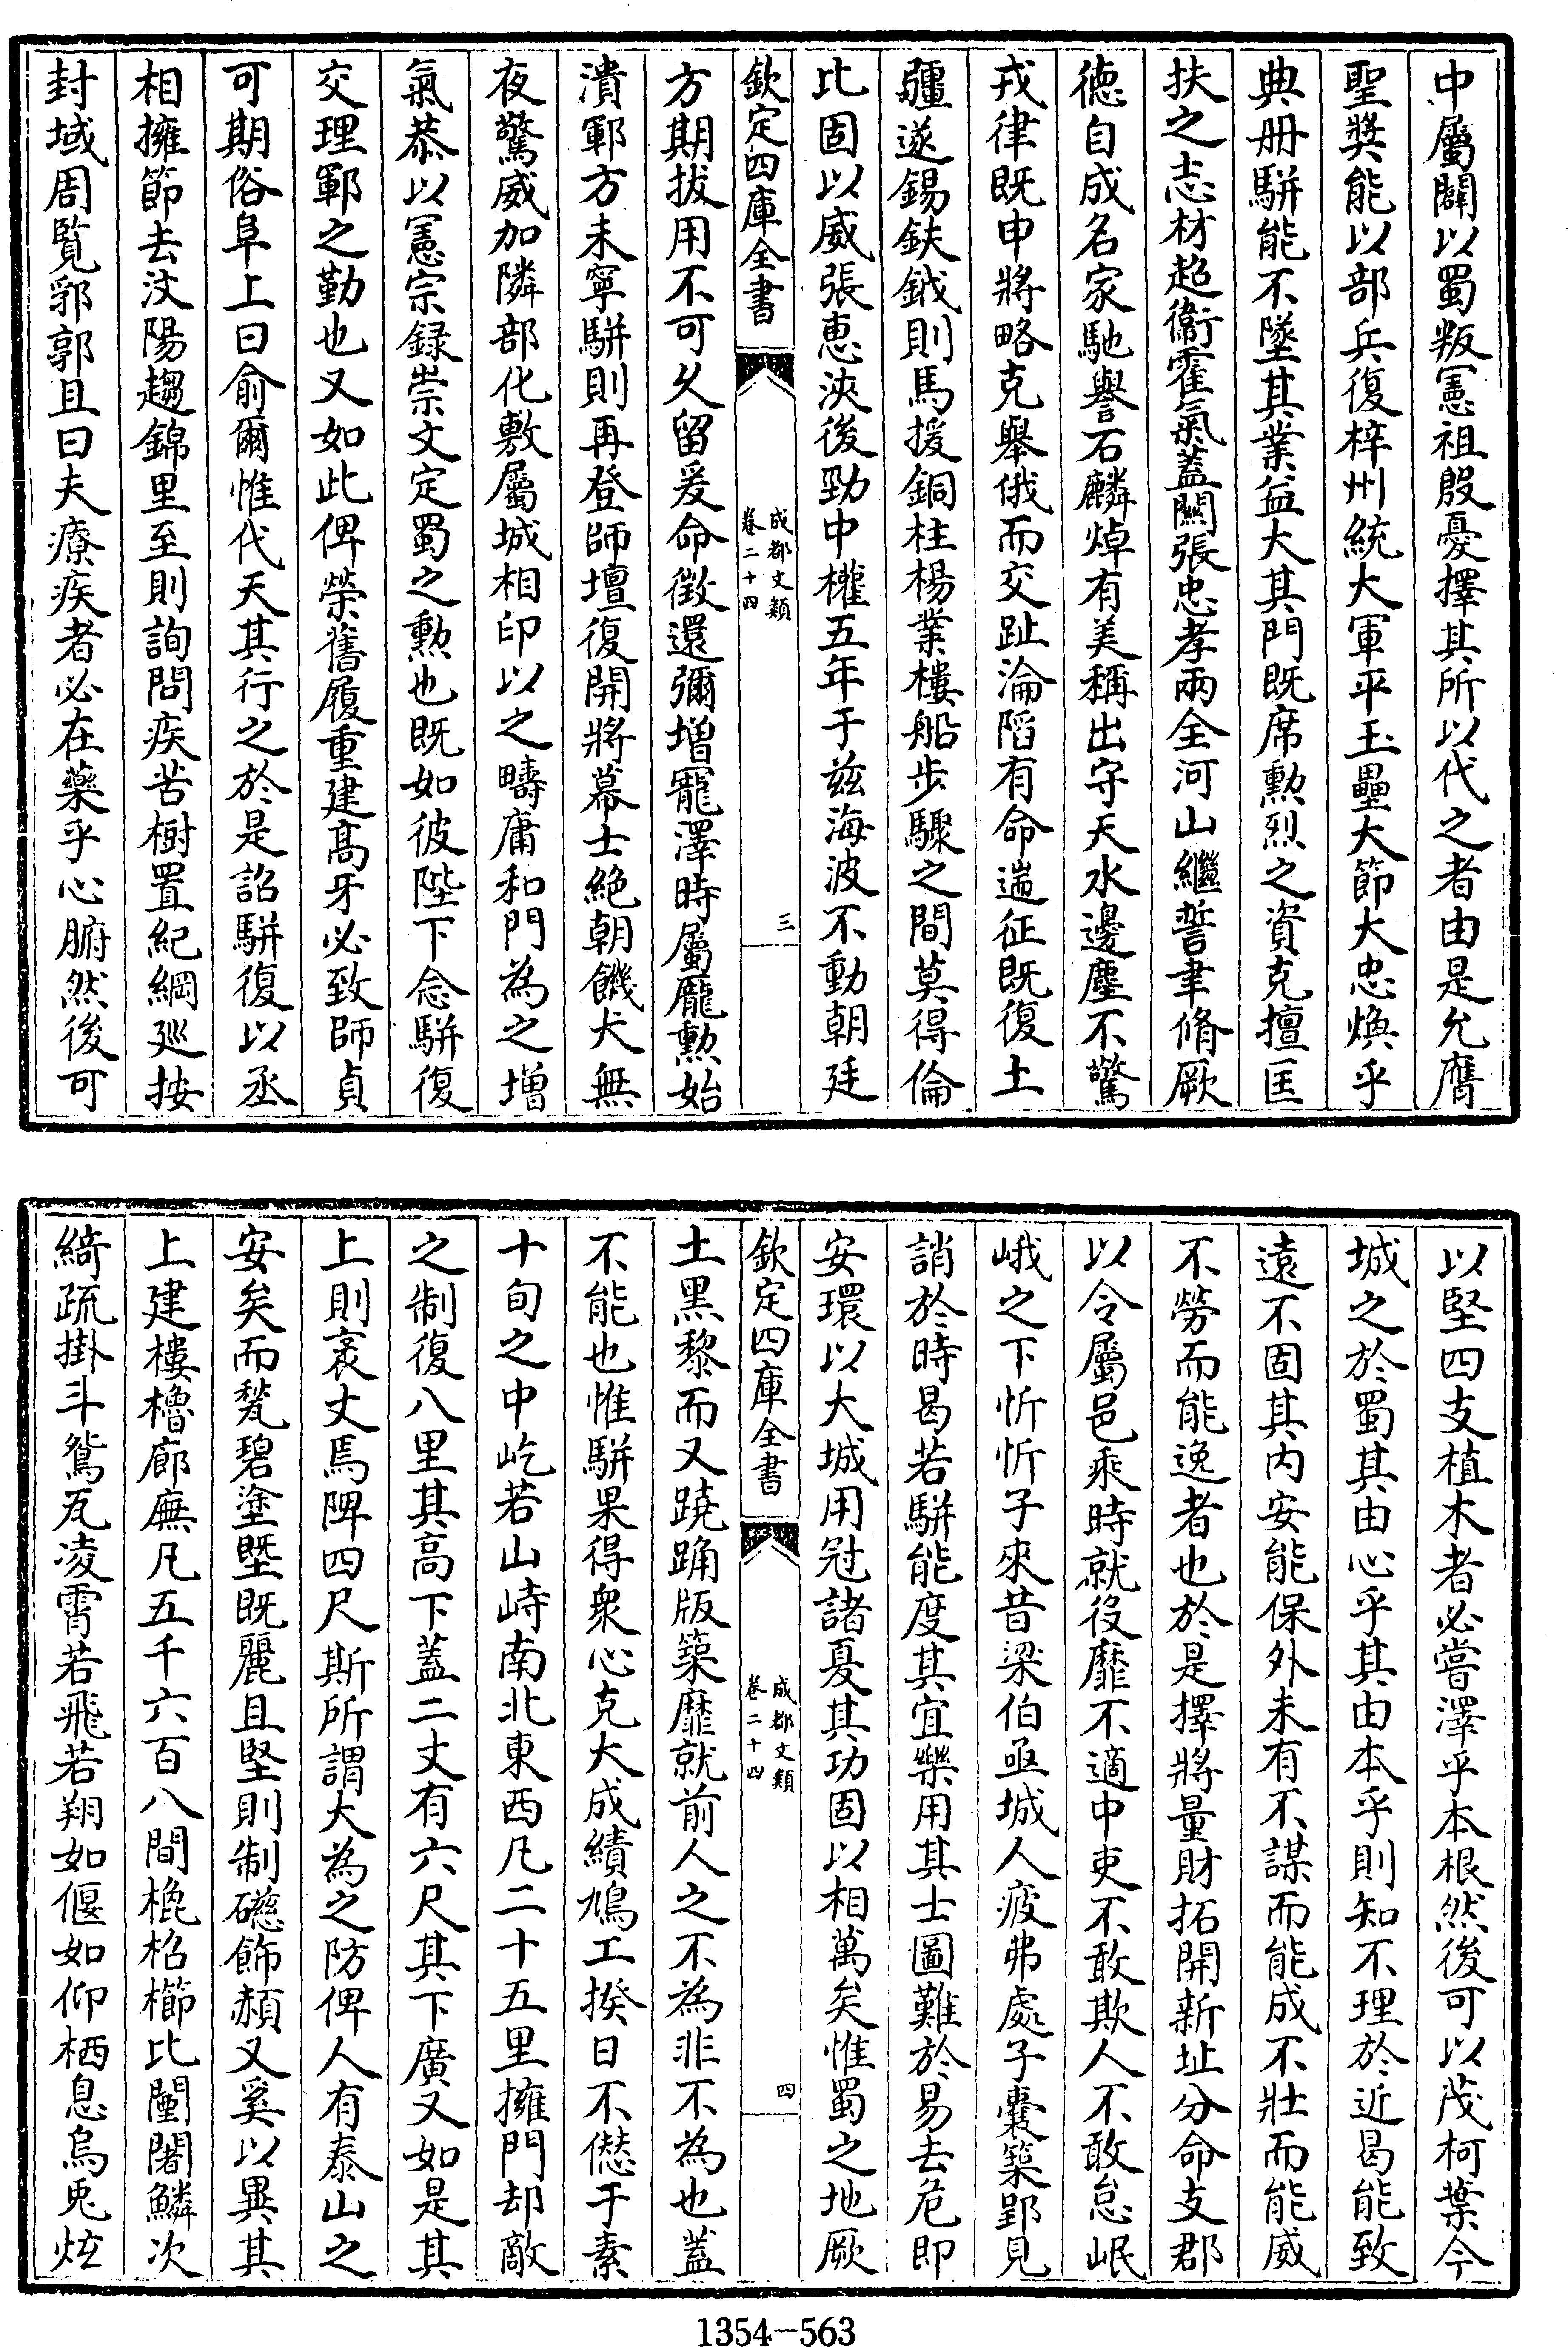 中屬闢以蜀叛憲祖殷憂擇其所以代之者由是允膺
聖奬能以部兵復梓州統大軍平玉壘大節大忠煥乎
典册駢能不墜其業益大其門既席勲烈之資克擅匡
扶之志材超衞霍氣蓋關張忠孝兩全河山繼誓聿脩厥
德自成名家馳譽石麟焯有美稱出守天水邊塵不驚
戎律既申將略克舉俄而交趾淪陷有命遄征既復土
疆遂錫鈇鉞則馬援銅柱楊業樓船步驟之間莫得倫
比固以威張惠浹後勁中權五年于兹海波不動朝廷
欽定四庫全書
成都文類
卷二十四
三
方期拔用不可久留爰命徵還彌增寵澤時屬龎勲始
潰鄆方未寧駢則再登師壇復開將幕士絶朝饑犬無
夜驚威加隣部化敷屬城相印以之疇庸和門為之增
氣恭以憲宗録崇文定蜀之勲也既如彼陛下念駢復
交理鄆之勤也又如此俾榮舊履重建髙牙必致師貞
可期俗阜上曰俞爾惟代天其行之於是詔駢復以丞
相擁節去汶陽趨錦里至則詢問疾苦樹置紀綱廵按
封域周覧郛郭且曰夫療疾者必在藥乎心腑然後可
以堅四支植木者必嘗澤乎本根然後可以茂柯葉今
城之於蜀其由心乎其由本乎則知不理於近曷能致
遠不固其内安能保外未有不謀而能成不壯而能威
不勞而能逸者也於是擇將量財拓開新址分命支郡
以令屬邑乘時就役靡不適中吏不敢欺人不敢怠岷
峨之下忻忻子來昔梁伯亟城人疲弗處子囊築郢見
誚於時曷若駢能度其宜樂用其士圖難於易去危即
安環以大城用冠諸夏其功固以相萬矣惟蜀之地厥
欽定四庫全書
成都文類
卷二十四
四
土黑黎而又蹺踊版築靡就前人之不為非不為也蓋
不能也惟駢果得衆心克大成績鳩工揆日不愆于素
十旬之中屹若山峙南北東西凡二十五里擁門却敵
之制復八里其高下蓋二丈有六尺其下廣又如是其
上則袤丈焉陴四尺斯所謂大為之防俾人有泰山之
安矣而甃碧塗塈既麗且堅則制磁飾赬又奚以異其
上建樓櫓廊廡凡五千六百八間㮰枱櫛比闉闍鱗次
綺疏掛斗鴛瓦凌霄若飛若翔如偃如仰栖息烏兎炫
1354-563